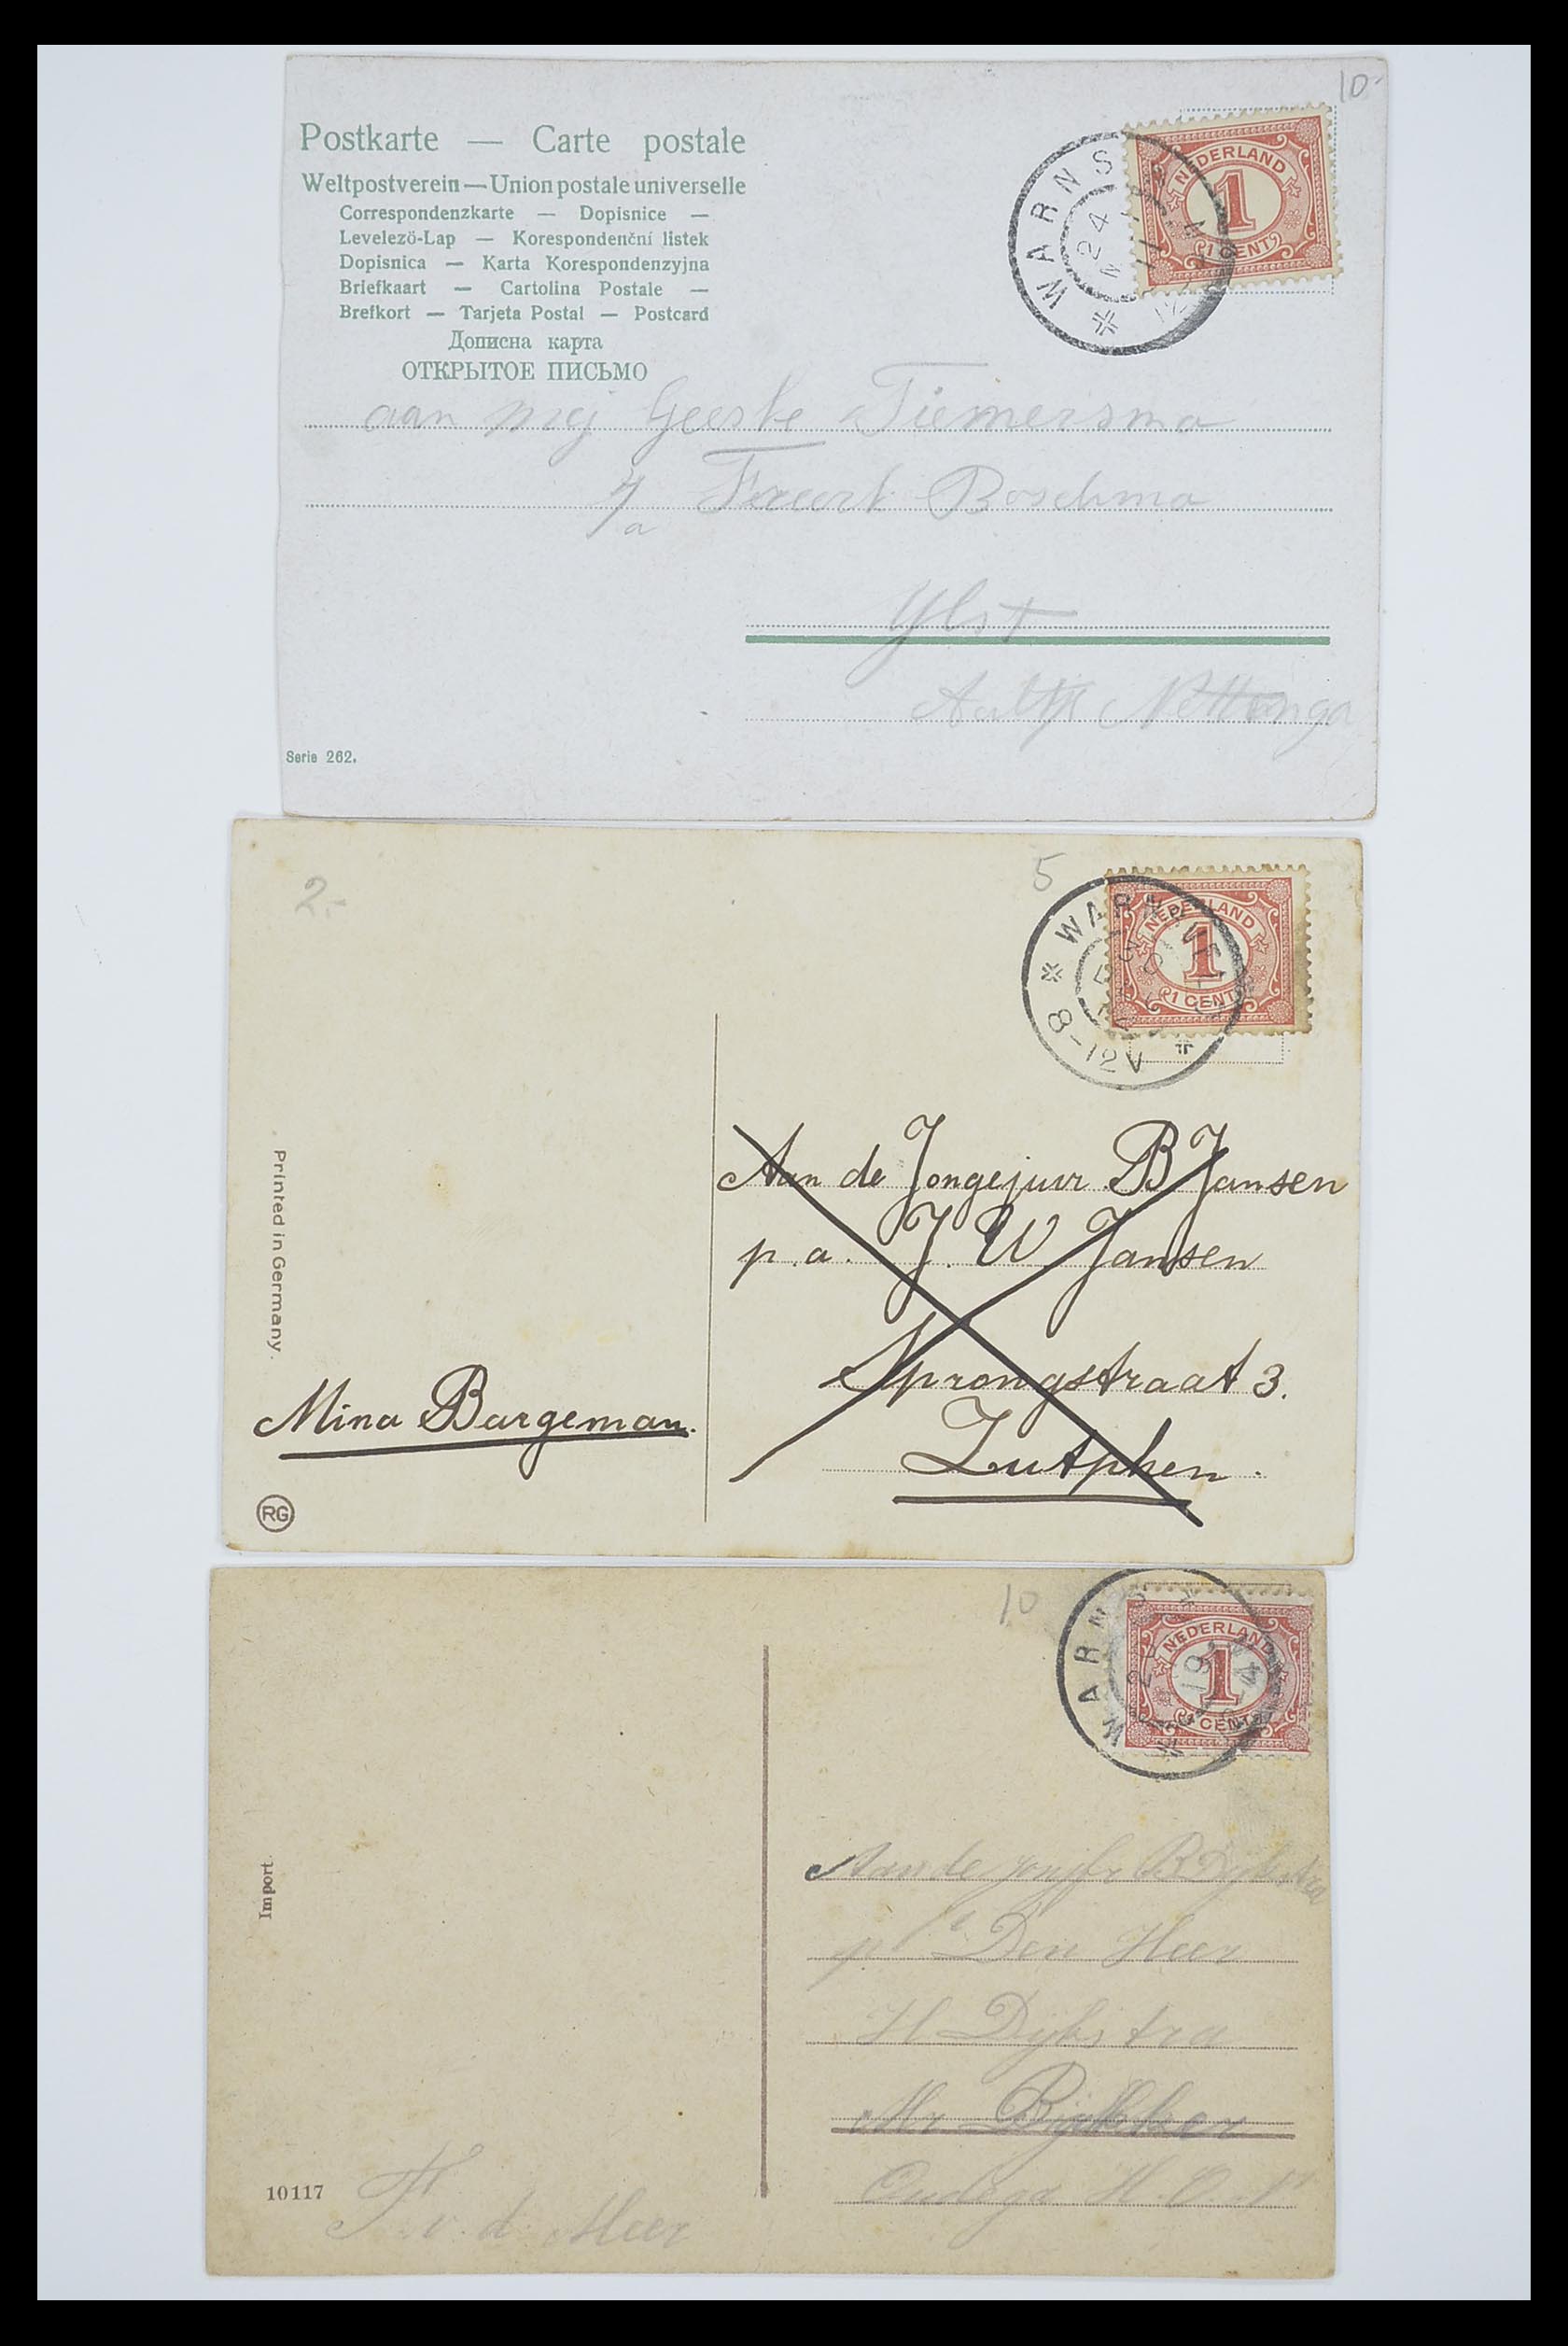 10-
Postkarte — Carte postale
Weltpostverein — Union postale universelle
Correspondenzkarte — Dopisnice —
Levelező-Lap — Korespondenční listek
Dopisnica — Karta Korespondenzyjna
Briefkaart — Cartolina Postale —
Brefkort — Tarjeta Postal — Postcard
Дописна карта
ОТКРЫТОЕ ПИСЬМО
NEDERLAND
1
1 CENT
WARNS
24
aan mej Geeske Tiemersma
Boschma
Ylst
Serie 262.
2.-
5
NEDERLAND
1
1 CENT
8-12V
Printed in Germany.
Aan de Jongejuvr B Jansen
p.a. J. W. Jansen
Sprongstraat 3.
Zutphen.
Mina Bargeman.
RG
10
NEDERLAND
1
1 CENT
WARNS
Import
Aan de B Dijkstra
Den Heer
H Dijkstra
Oudega H.O.N
10117
F. v. d. Meer